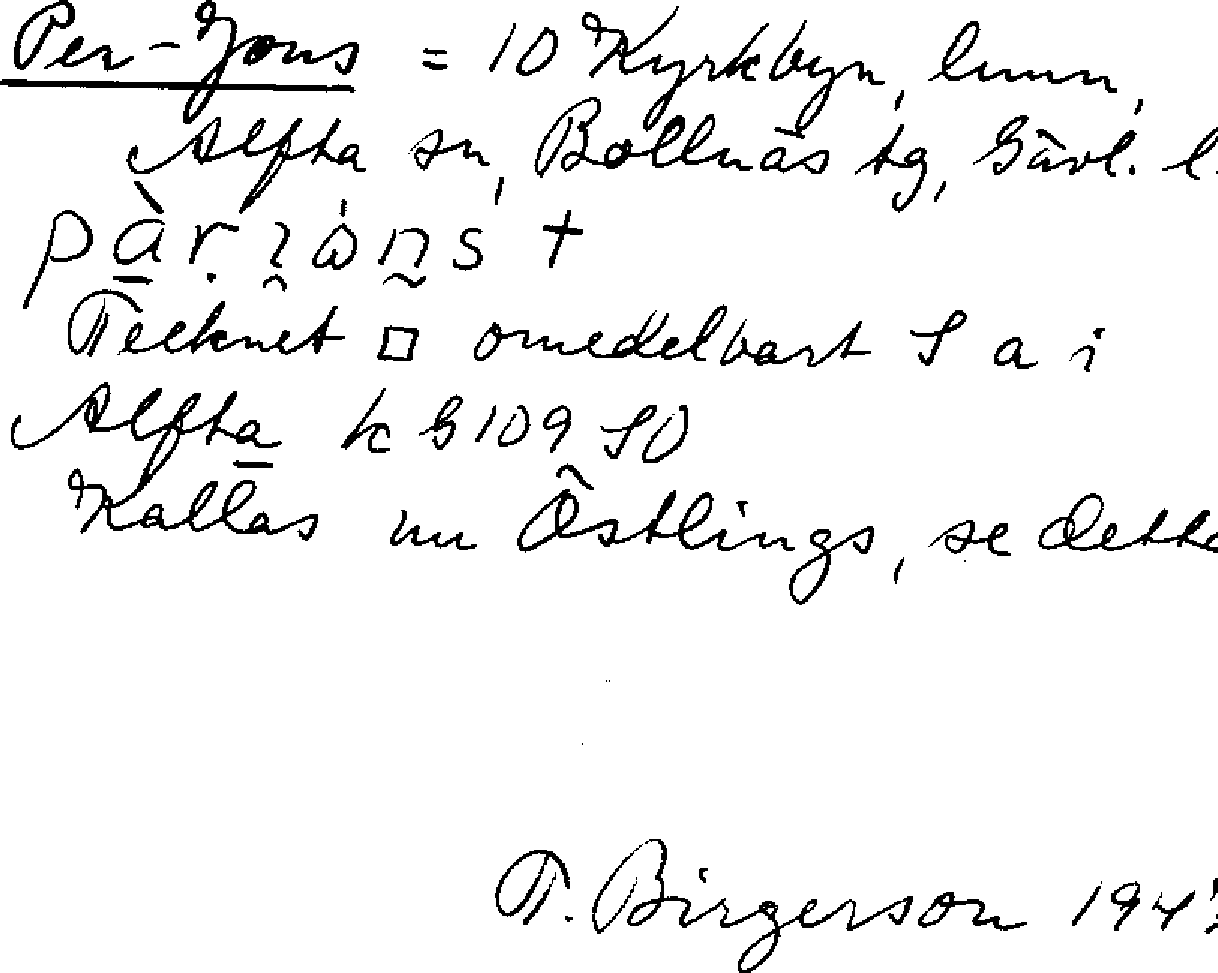 Per-Jons = 10 Kyrkbyn, lmn,
Alfta sn, Bollnäs tg, Gävl. l.
Tecknet □ omedelbart S a i
Alfta k G 109 SO
Kallas nu Östlings, se detta
T. Birgerson